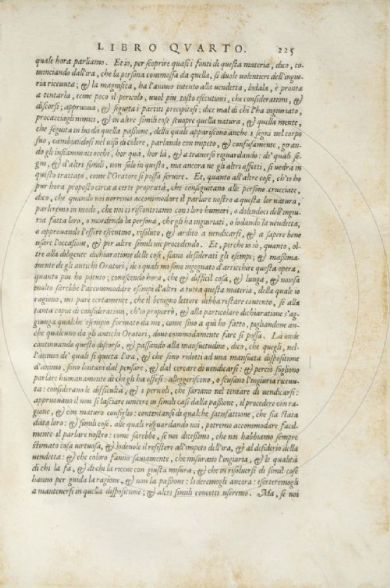 LIBRO QVARTO. 225
quale hora parliamo. Et io, per scoprire quasi i fonti di questa materia, dico, co-
minciando dall'ira, che la persona commossa da quella, si duole volentieri dell'ingiu-
ria riceuuta; & la magnifica, ha l'animo intento alla vendetta,
a tentarla, come poco il pericolo, vuol più tosto che consideratione, &
discorsi; approua, & seguita i partiti precipitosi: dice mal di chi l'ha ingiuriato,
& in altre simili cose stuopre quella natura, & quella mente,
che seguita in lui da quella passione, della quale appariscono anche i segni nel corpo
suo, cambiandosi nel uiso di colore, parlando con impeto, & confusamente,
hor quà, hor là, & a trauerso riguardando: de' quali se-
gni, & d'altri simili, non solo in questo, ma ancora ne gli altri affetti, si vedrà in
questo trattato, come l'Oratore si possa seruire. Et, quanto all'altre cose, ch'io ho
pur hora proposto circa a certe proprietà, che conseguitano alle persone crucciate,
dico, che quando noi vorremo accommodare il parlare nostro a questa lor natura,
parleremo in modo, che noi ci riscontriamo con i loro humori, o dolendoci dell'ingiu-
ria fatta loro, o mordendo la persona, che gli ha ingiuriati, o lodando la vendetta,
o approuando l'esser risoluto, & ardito a uendicarsi, & a sapere bene
usare l'occasioni, & per altre simili uie procedendo. Et, perche io sò, quanto, ol-
tre alla diligente dichiaratione delle cose, siano desiderati gli esempi; & massima-
mente de gli antichi Oratori, de i quali mi sono ingegnato d'arricchire questa opera,
quanto più ho potuto; conoscendo hora, che difficil cosa, & lunga, & noiosa
molto sarebbe l'accommodare esempi d'altri a tutta questa materia, della quale io
ragiono, mi pare certamente, che il benigno lettore debba restare contento, se alla
tanta copia di considerationi, ch'io proporrò, & alla particolare dichiaratione s'ag-
giunga qualche esempio formato da me, come sino a quì ho fatto, pigliandone an-
che qualcuno da gli antichi Oratori, doue commodamente fare si possa. La onde
continuando questo discorso, & passando alla mansuetudine, dico, che quegli, nel-
l'animo de' quali si quieta l'ira, & che sono ridotti ad una mansueta dispositione
d'animo, sono lontani dal pensare, & dal cercare di uendicarsi: & perciò sogliono
parlare humanamente di chi gli ha offesi: alleggeriscono, o scusano l'ingiuria riceuu-
ta: considerano le difficultà, & i pericoli, che portano nel tentare di uendicarsi:
approuano il non si lasciare uincere in simili casi dalla passione, il procedere con ra-
gione, & con maturo consiglio: contentansi di qualche satisfattione, che sia stata
data loro: & simili cose. alle quali riguardando noi, potremo accommodare facil-
mente il parlar nostro: come sarebbe, se noi dicessimo, che noi habbiamo sempre
stimato cosa virtuosa, & lodeuole il resistere all'impeto dell'ira, & al desiderio della
vendetta: & che coloro fanno sauiamente, che misurano l'ingiuria, & le qualità
di chi la fa, & di chi la riceue con giusta misura; & che in risoluersi di simil cose
hanno per guida la ragione, & non la passione: li loderemo ancora: esorteremogli
a mantenersi in quella dispositione; & altri simili concetti useremo. Ma, se noi